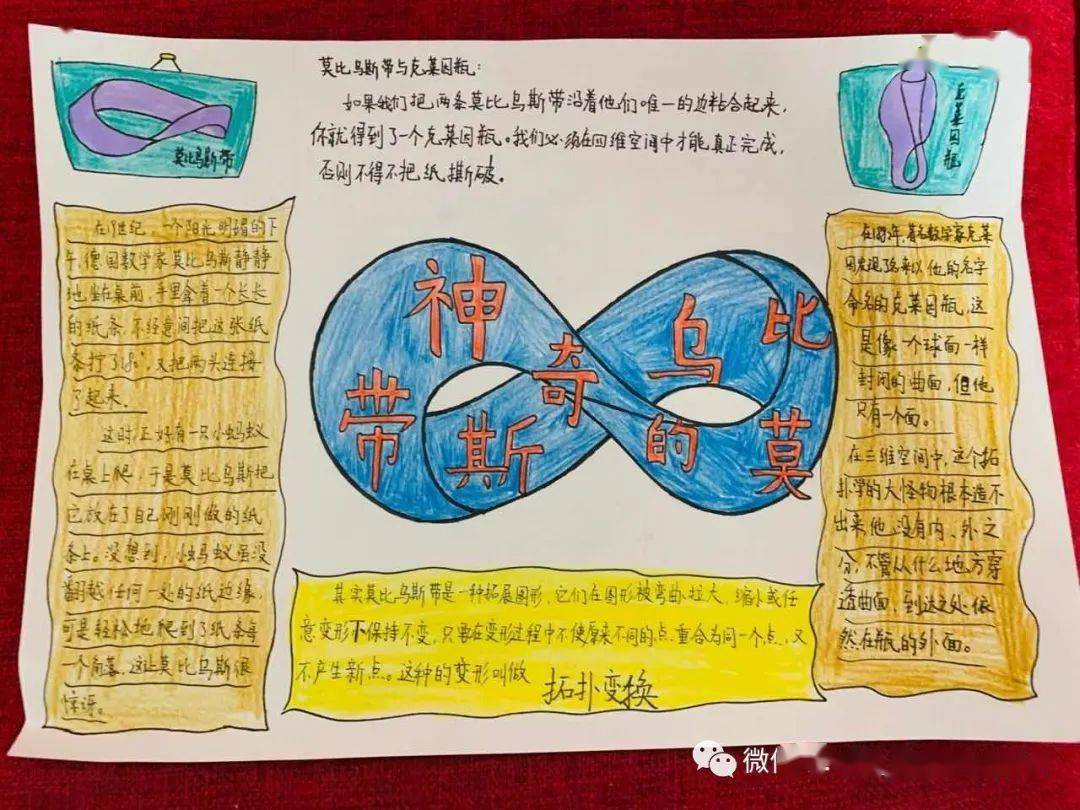 莫比乌斯带
莫比乌斯带与克莱因瓶:
如果我们把两条莫比乌斯带沿着他们唯一的边粘合起来,
你就得到了一个克莱因瓶。我们必须在四维空间中才能真正完成,
否则不得不把纸撕破。
克莱因瓶
在19世纪,一个阳光明媚的下
午,德国数学家莫比乌斯静静
地坐在桌前,手里拿着一个长长
的纸条,不经意间把这张纸
条拧了18°,又把两头连接
了起来.
这时,正好有一只小蚂蚁
在桌上爬,于是莫比乌斯把
它放在了自己刚刚做的纸
条上。没想到,小蚂蚁虽没
翻越任何一处的纸边缘,
可是轻松地爬到了纸条每
一个角落,这让莫比乌斯很
惊讶。
神奇的莫比乌斯带
其实莫比乌斯带是一种拓展图形,它们在图形被弯曲、拉大、缩小或任
意变形下保持不变,只要在变形过程中不使原来不同的点重合为同一个点,又
不产生新点。这种的变形叫做
拓扑变换
年,著名数学家克莱
因发现了后来以他的名字
命名的克莱因瓶,这
是像一个球面一样
封闭的曲面,但他
只有一个面。
在三维空间中,这个拓
扑学的大怪物根本造不
出来,他没有内、外之
分,不管从什么地方穿
透曲面,到达之处依
然在瓶的外面。
微信